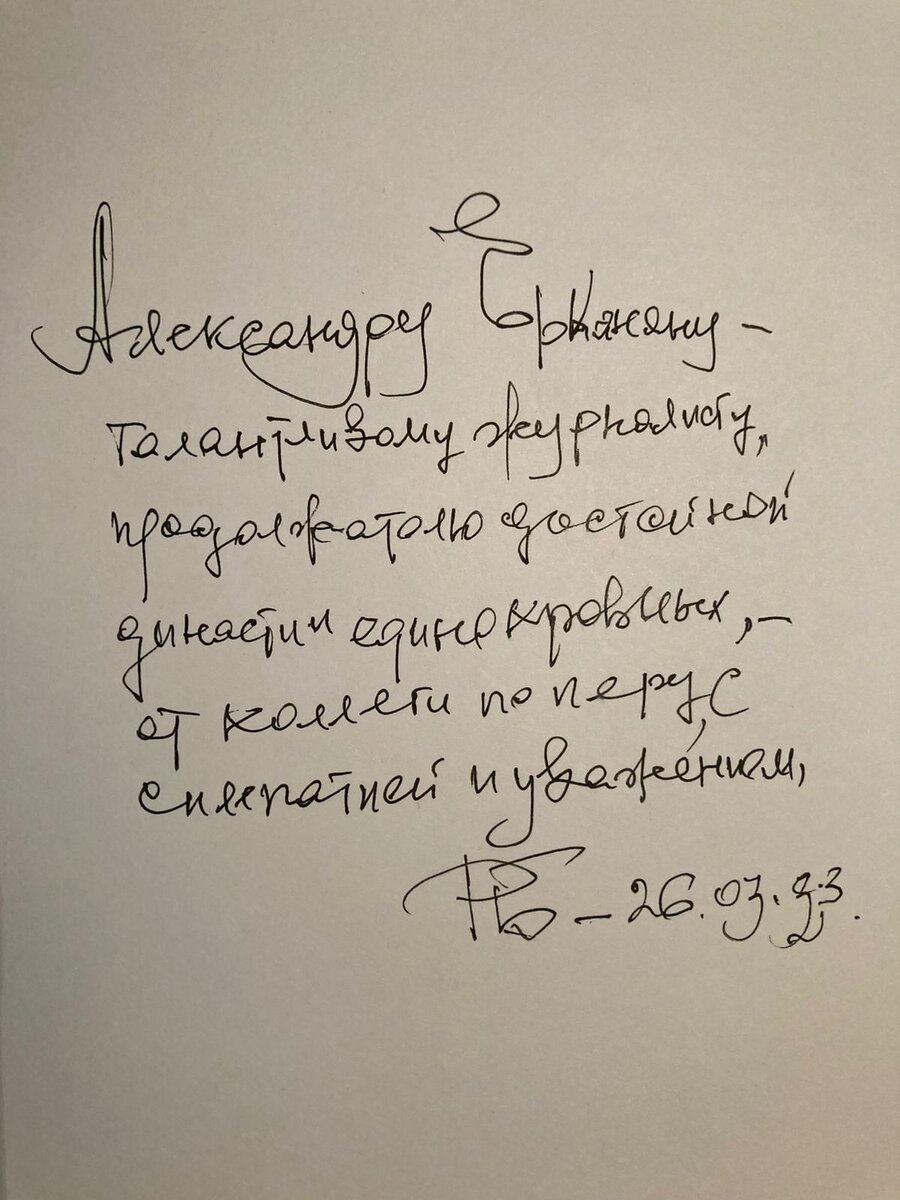 Александру Ерканяну –
талантливому журналисту,
продолжателю достойной
династии единокровных, –
от коллеги по перу, с
симпатией и уважением,
– 26.03.23.